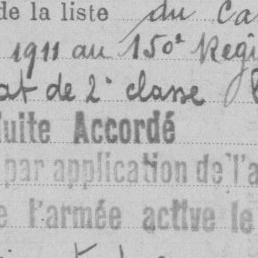 de la liste du Ca
1911 au 150e Regi
at de 2e classe
uite Accordé
par application de l'a
e l'armée active le